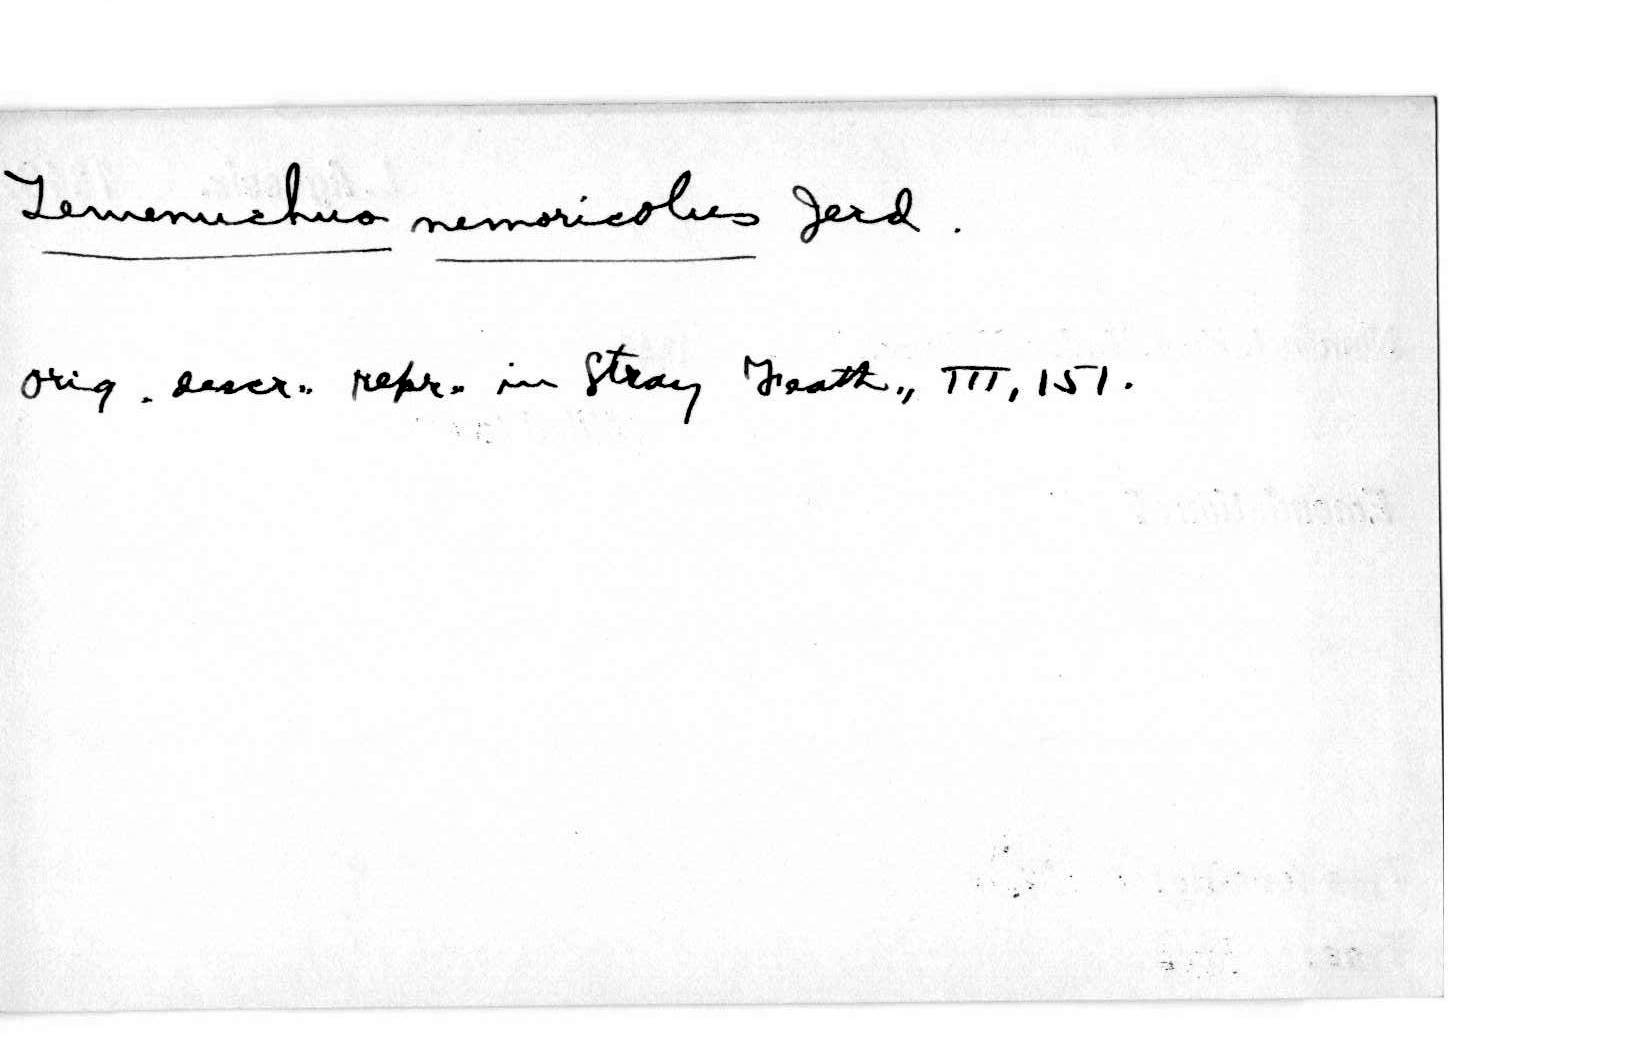 Temenuchus nemoricolus Jerd.
orig. descr. repr. in Stray Feath., III, 151.